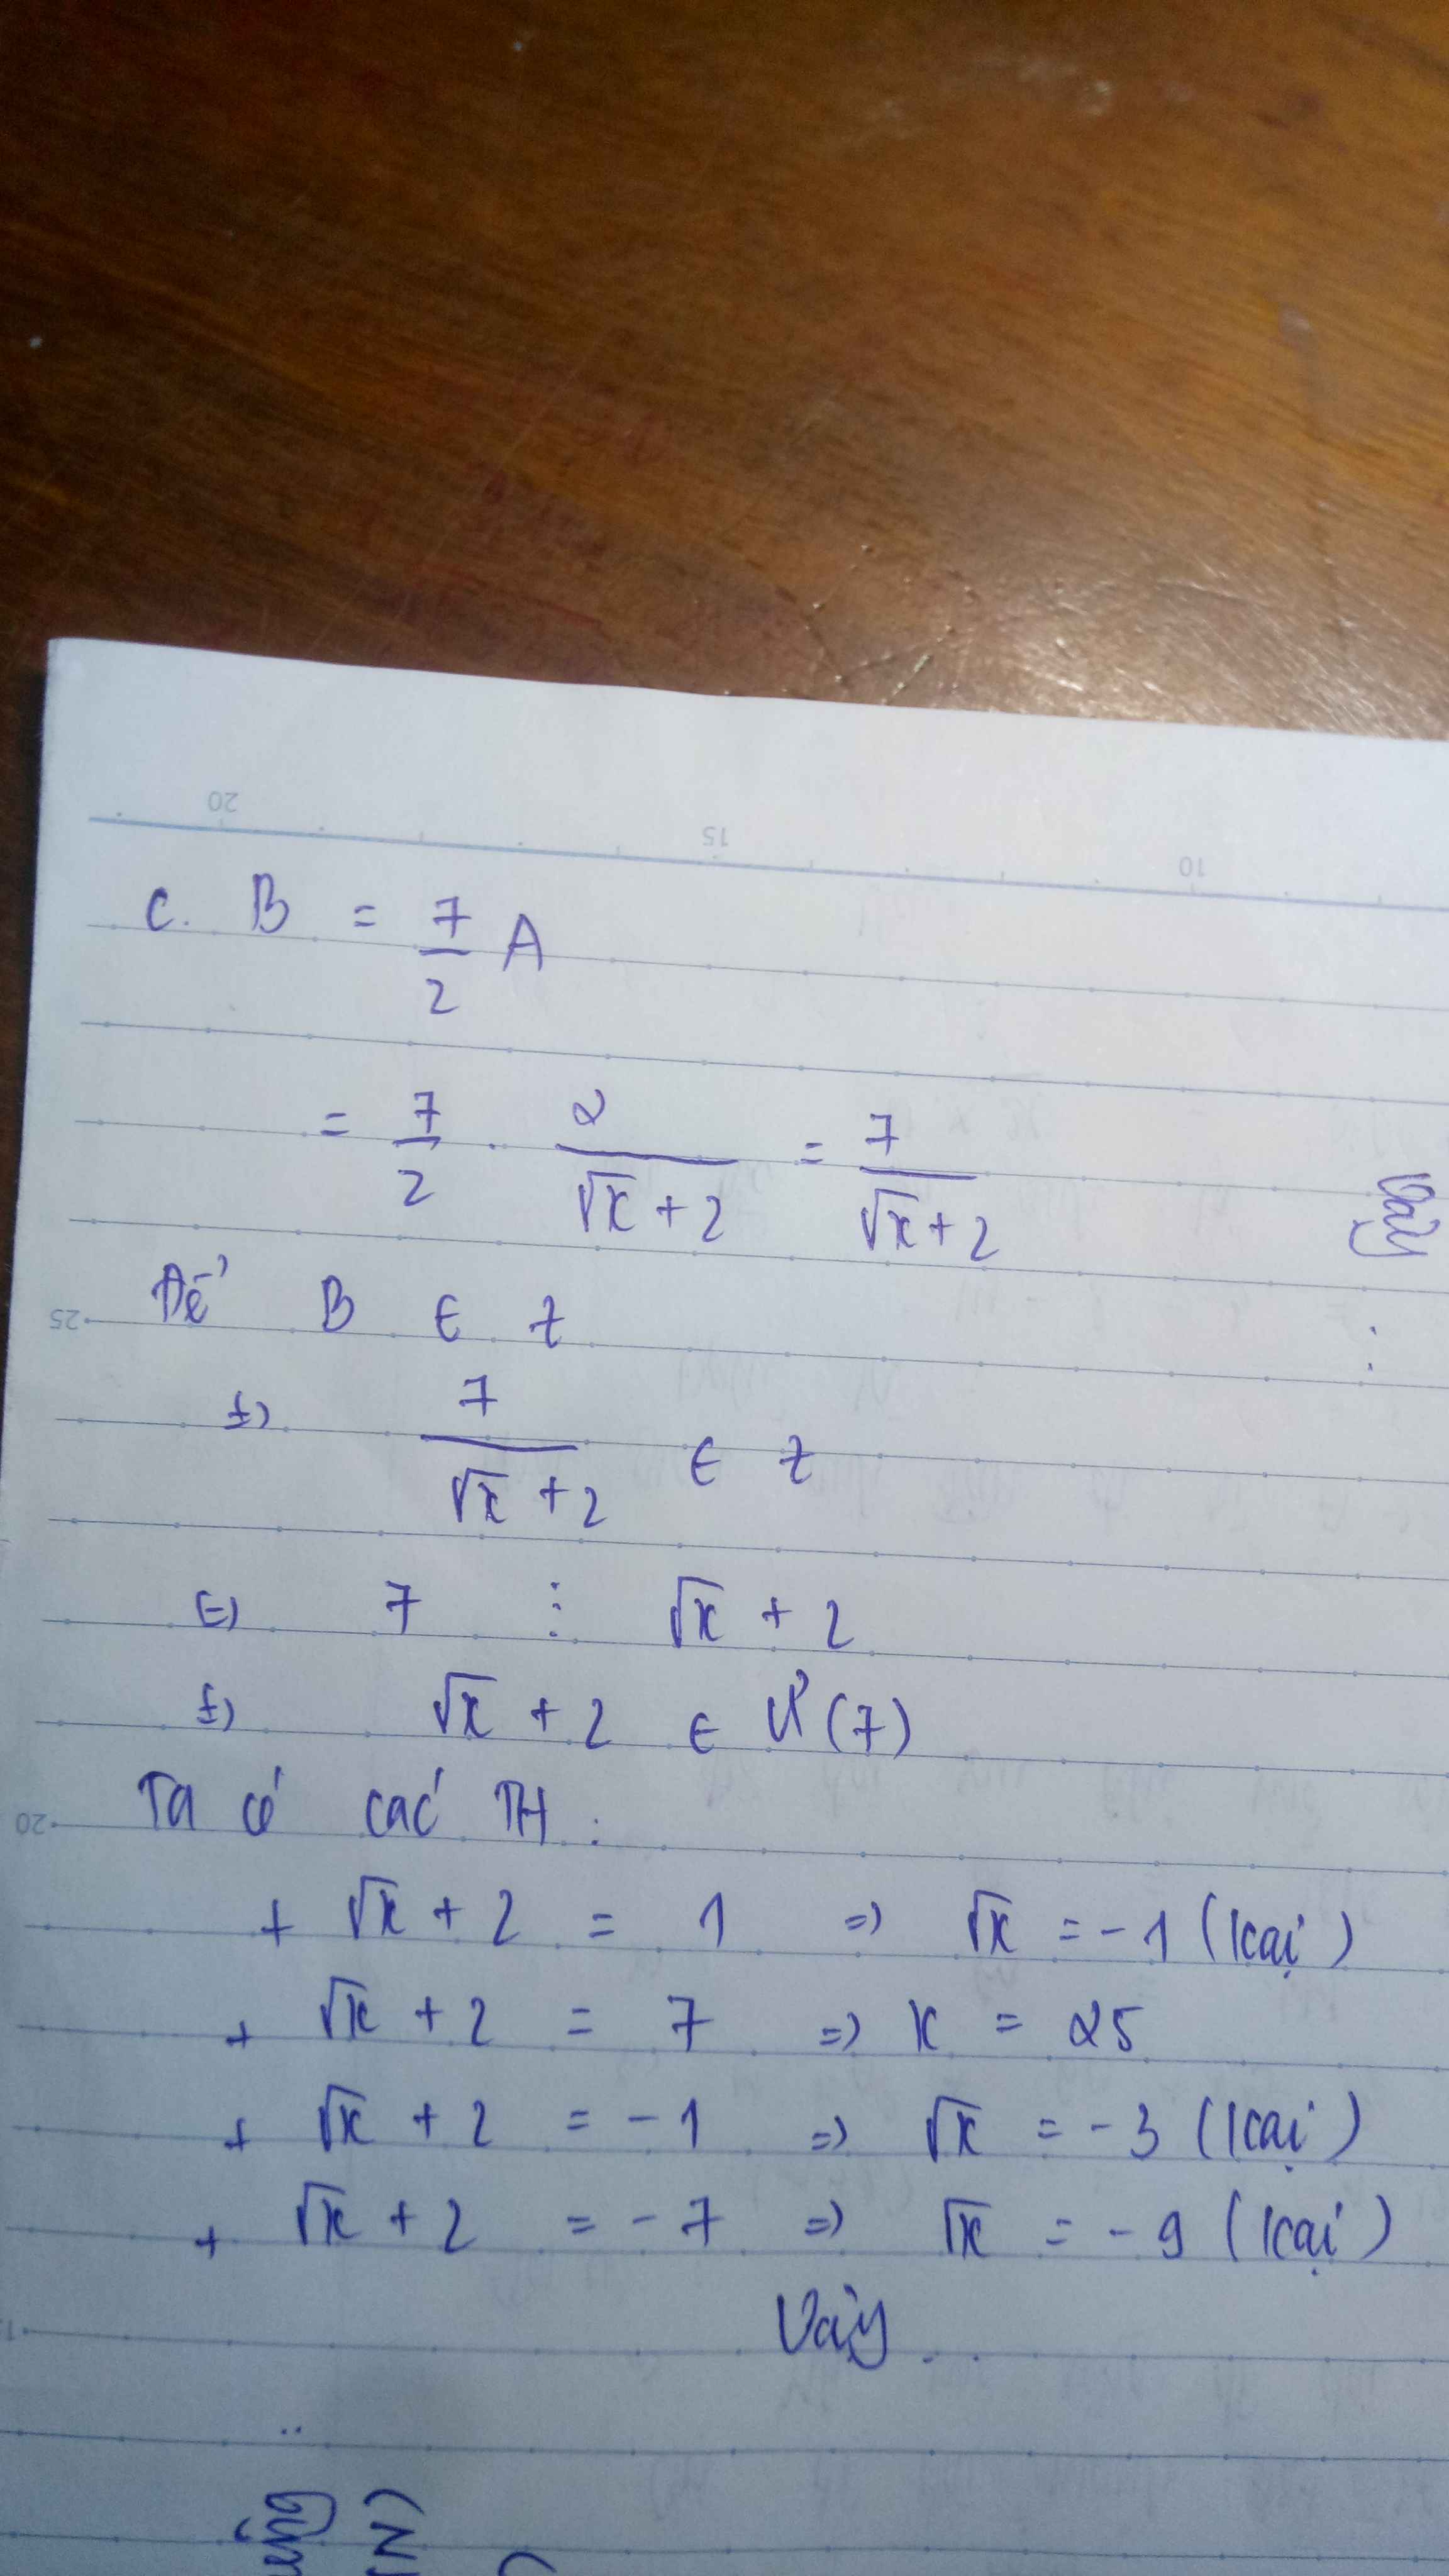 20 15 10
c. B = 7/2 A
= 7/2 . 2/(√x + 2) = 7/(√x + 2)
Để B ∈ Z
25
⇔ 7/(√x + 2) ∈ Z
⇔ 7 ⋮ √x + 2
⇔ √x + 2 ∈ Ư(7)
Ta có các TH :
20
+ √x + 2 = 1 => √x = -1 (loại)
+ √x + 2 = 7 => x = 25
+ √x + 2 = -1 => √x = -3 (loại)
+ √x + 2 = -7 => √x = -9 (loại)
Vậy...